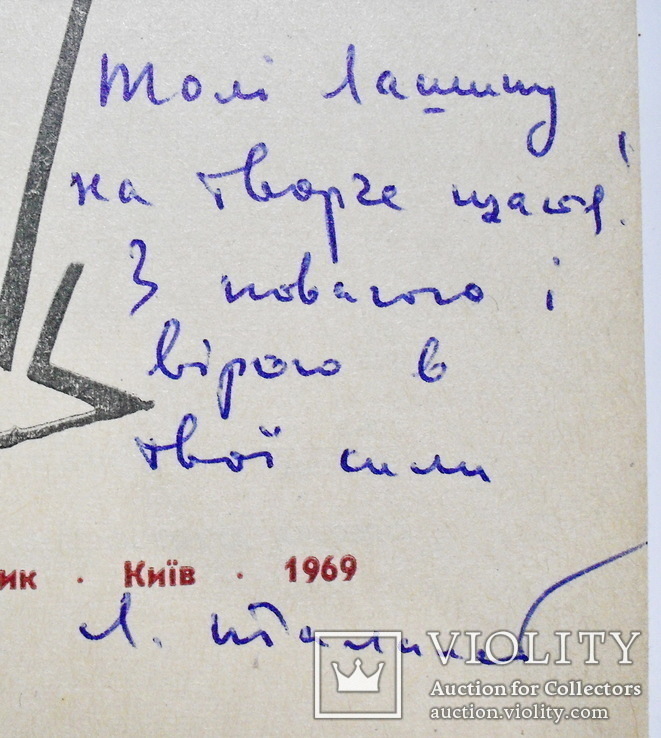 Толі Лашину
на творче щастя!
З повагою і
вірою в
твої сили
ик · Київ · 1969
Л.
VIOLITY
Auction for Collectors
auction.violity.com